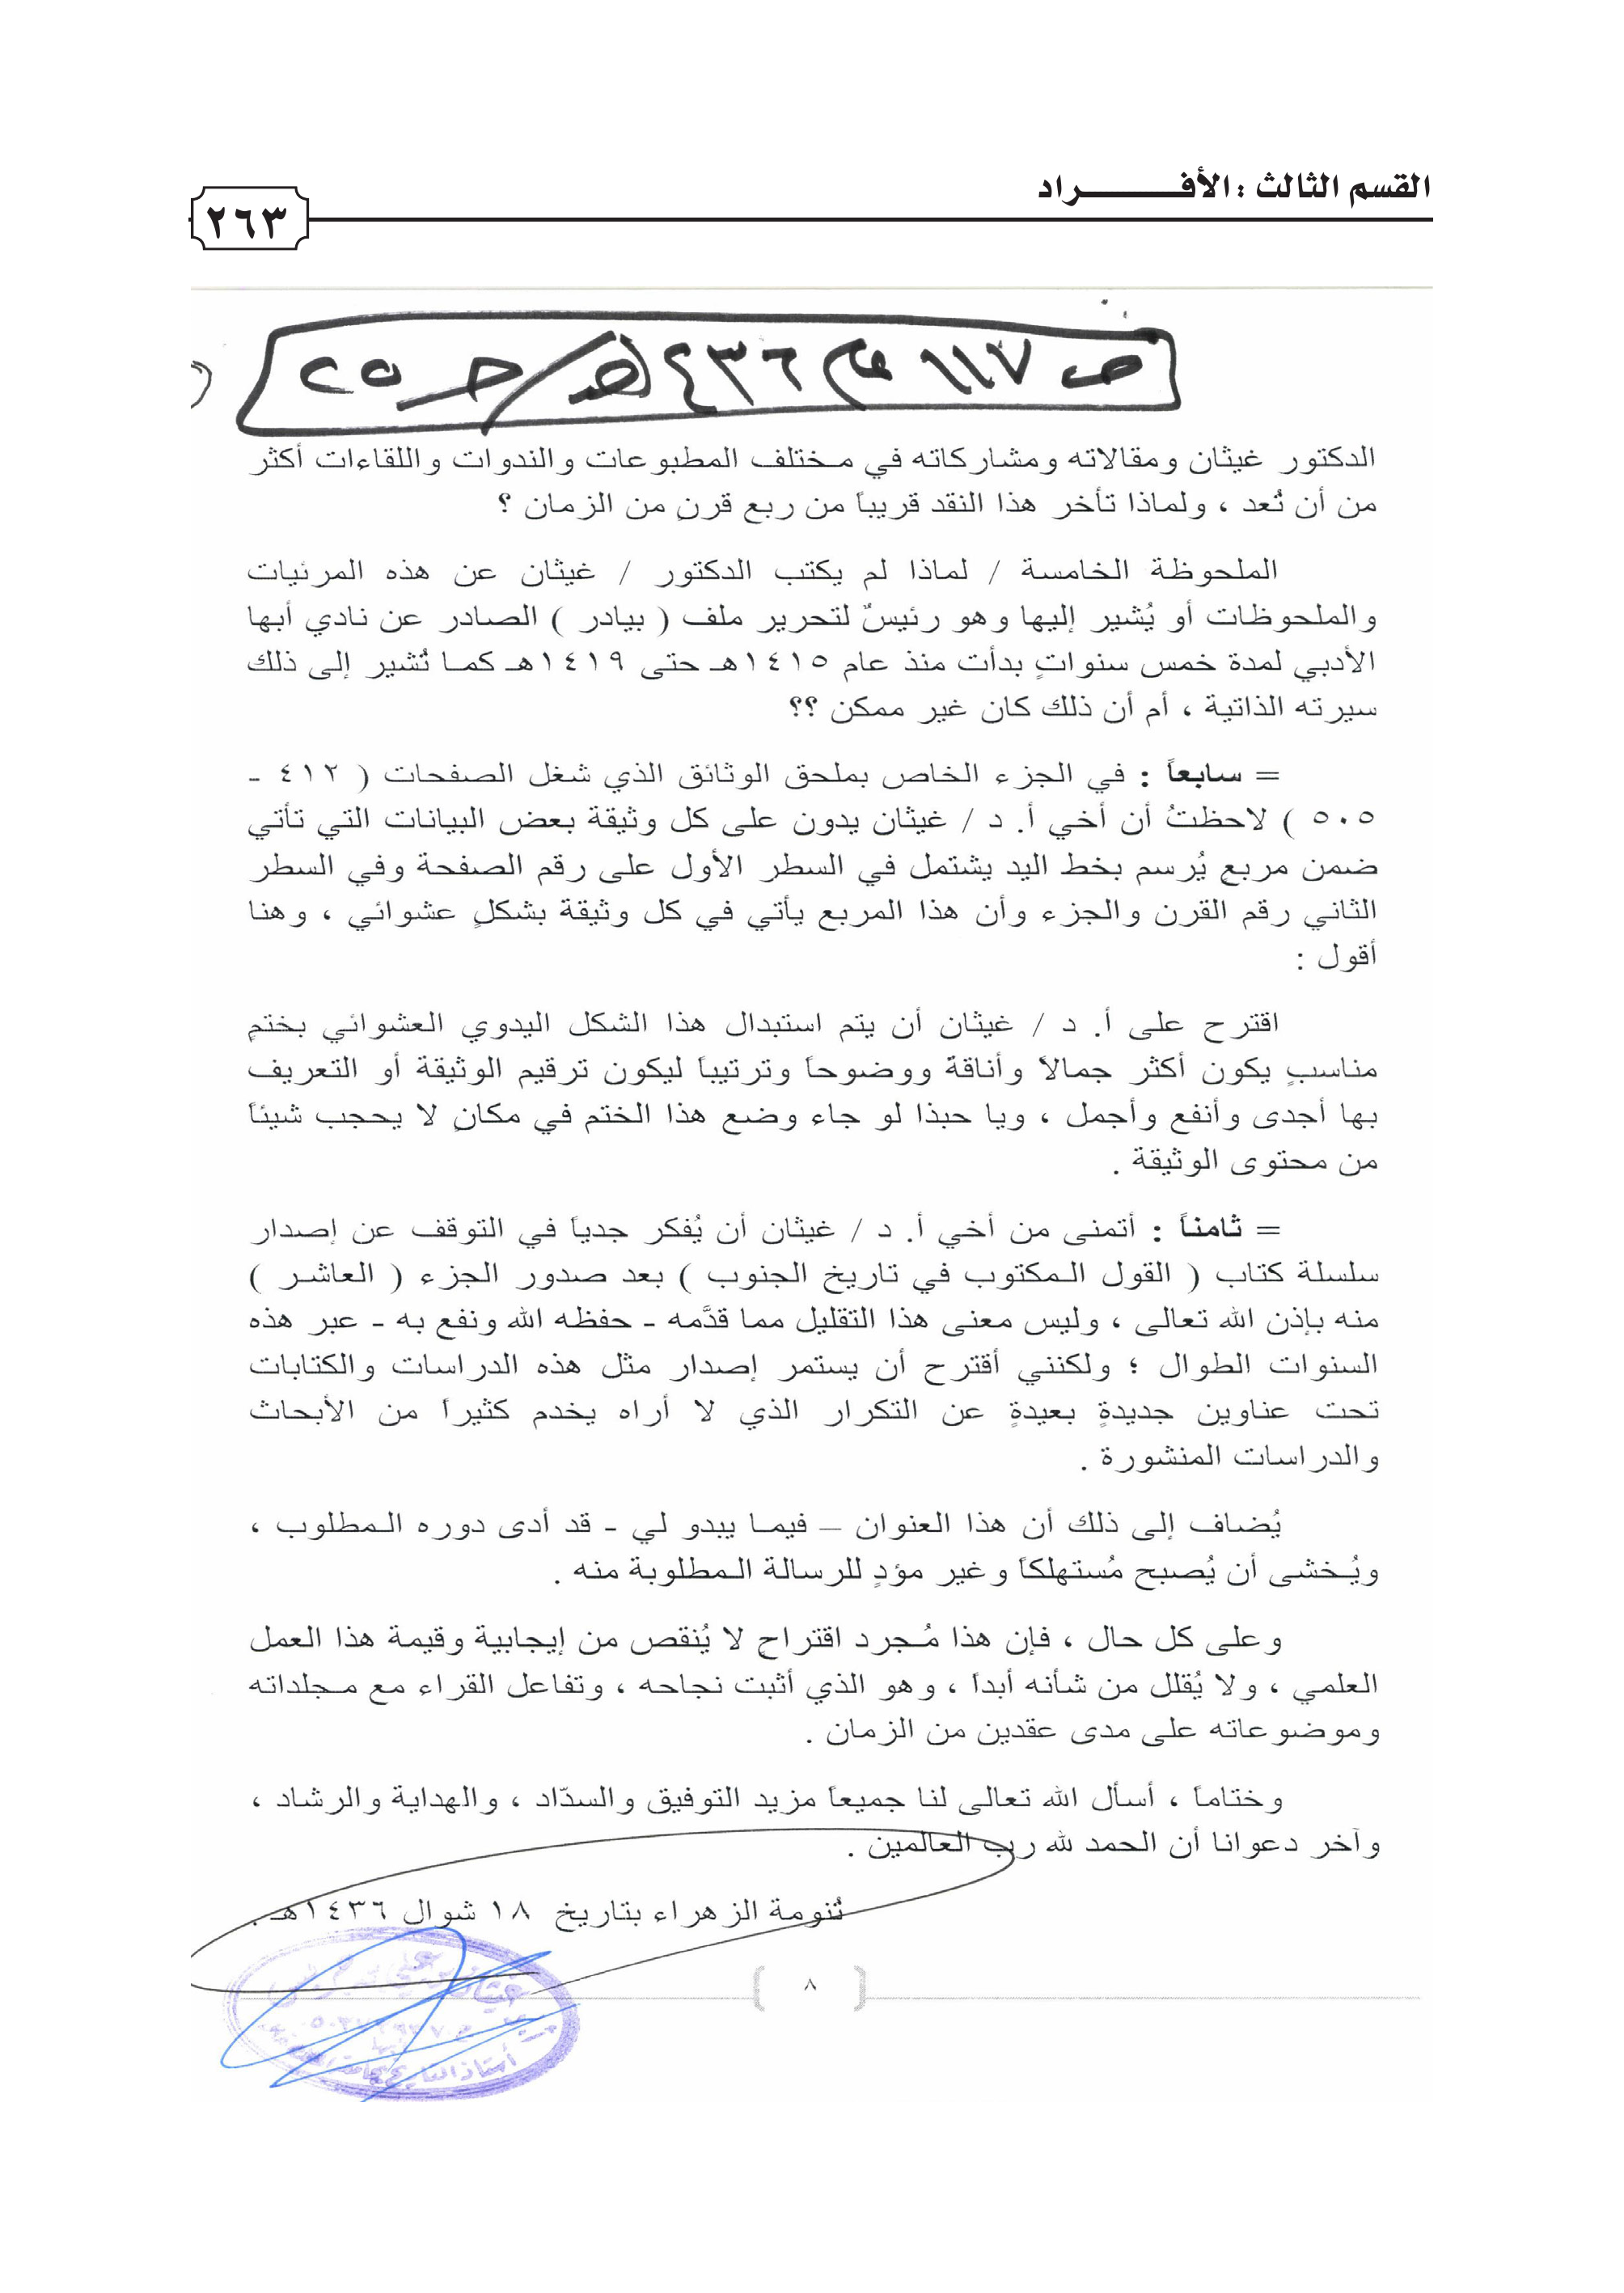 القسم الثالث : الأفـــــــراد
٢٦٣
ص ١١٧ عام ١٤٣٦هـ / جـ ٢٥
الدكتور غيثان ومقالاته ومشاركاته في مختلف المطبوعات والندوات واللقاءات أكثر
من أن تُعد ، ولماذا تأخر هذا النقد قريباً من ربع قرنٍ من الزمان ؟
الملحوظة الخامسة / لماذا لم يكتب الدكتور / غيثان عن هذه المرئيات
والملحوظات أو يُشير إليها وهو رئيسٌ لتحرير ملف ( بيادر ) الصادر عن نادي أبها
الأدبي لمدة خمس سنواتٍ بدأت منذ عام ١٤١٥هـ حتى ١٤١٩هـ كما تُشير إلى ذلك
سيرته الذاتية ، أم أن ذلك كان غير ممكن ؟؟
= سابعاً : في الجزء الخاص بملحق الوثائق الذي شغل الصفحات ( ٤١٢ -
٥٠٥ ) لاحظتُ أن أخي أ. د / غيثان يدون على كل وثيقة بعض البيانات التي تأتي
ضمن مربعٍ يُرسم بخط اليد يشتمل في السطر الأول على رقم الصفحة وفي السطر
الثاني رقم القرن والجزء وأن هذا المربع يأتي في كل وثيقة بشكلٍ عشوائي ، وهنا
أقول :
اقترح على أ. د / غيثان أن يتم استبدال هذا الشكل اليدوي العشوائي بختمٍ
مناسبٍ يكون أكثر جمالاً وأناقةً ووضوحاً وترتيباً ليكون ترقيم الوثيقة أو التعريف
بها أجدى وأنفع وأجمل ، ويا حبذا لو جاء وضع هذا الختم في مكانٍ لا يحجب شيئاً
من محتوى الوثيقة .
= ثامناً : أتمنى من أخي أ. د / غيثان أن يُفكر جدياً في التوقف عن إصدار
سلسلة كتاب ( القول المكتوب في تاريخ الجنوب ) بعد صدور الجزء ( العاشر )
منه بإذن الله تعالى ، وليس معنى هذا التقليل مما قدَّمه - حفظه الله ونفع به - عبر هذه
السنوات الطوال ؛ ولكنني أقترح أن يستمر إصدار مثل هذه الدراسات والكتابات
تحت عناوين جديدةٍ بعيدةٍ عن التكرار الذي لا أراه يخدم كثيراً من الأبحاث
والدراسات المنشورة .
يُضاف إلى ذلك أن هذا العنوان – فيما يبدو لي - قد أدى دوره المطلوب ،
ويُخشى أن يُصبح مُستهلكاً وغير مؤدٍ للرسالة المطلوبة منه .
وعلى كل حال ، فإن هذا مُجرد اقتراحٍ لا يُنقص من إيجابية وقيمة هذا العمل
العلمي ، ولا يُقلل من شأنه أبداً ، وهو الذي أثبت نجاحه ، وتفاعل القراء مع مجلداته
وموضوعاته على مدى عقدين من الزمان .
وختاماً ، أسأل الله تعالى لنا جميعاً مزيد التوفيق والسدّاد ، والهداية والرشاد ،
وآخر دعوانا أن الحمد لله رب العالمين .
تُنومة الزهراء بتاريخ ١٨ شوال ١٤٣٦هـ .
٨